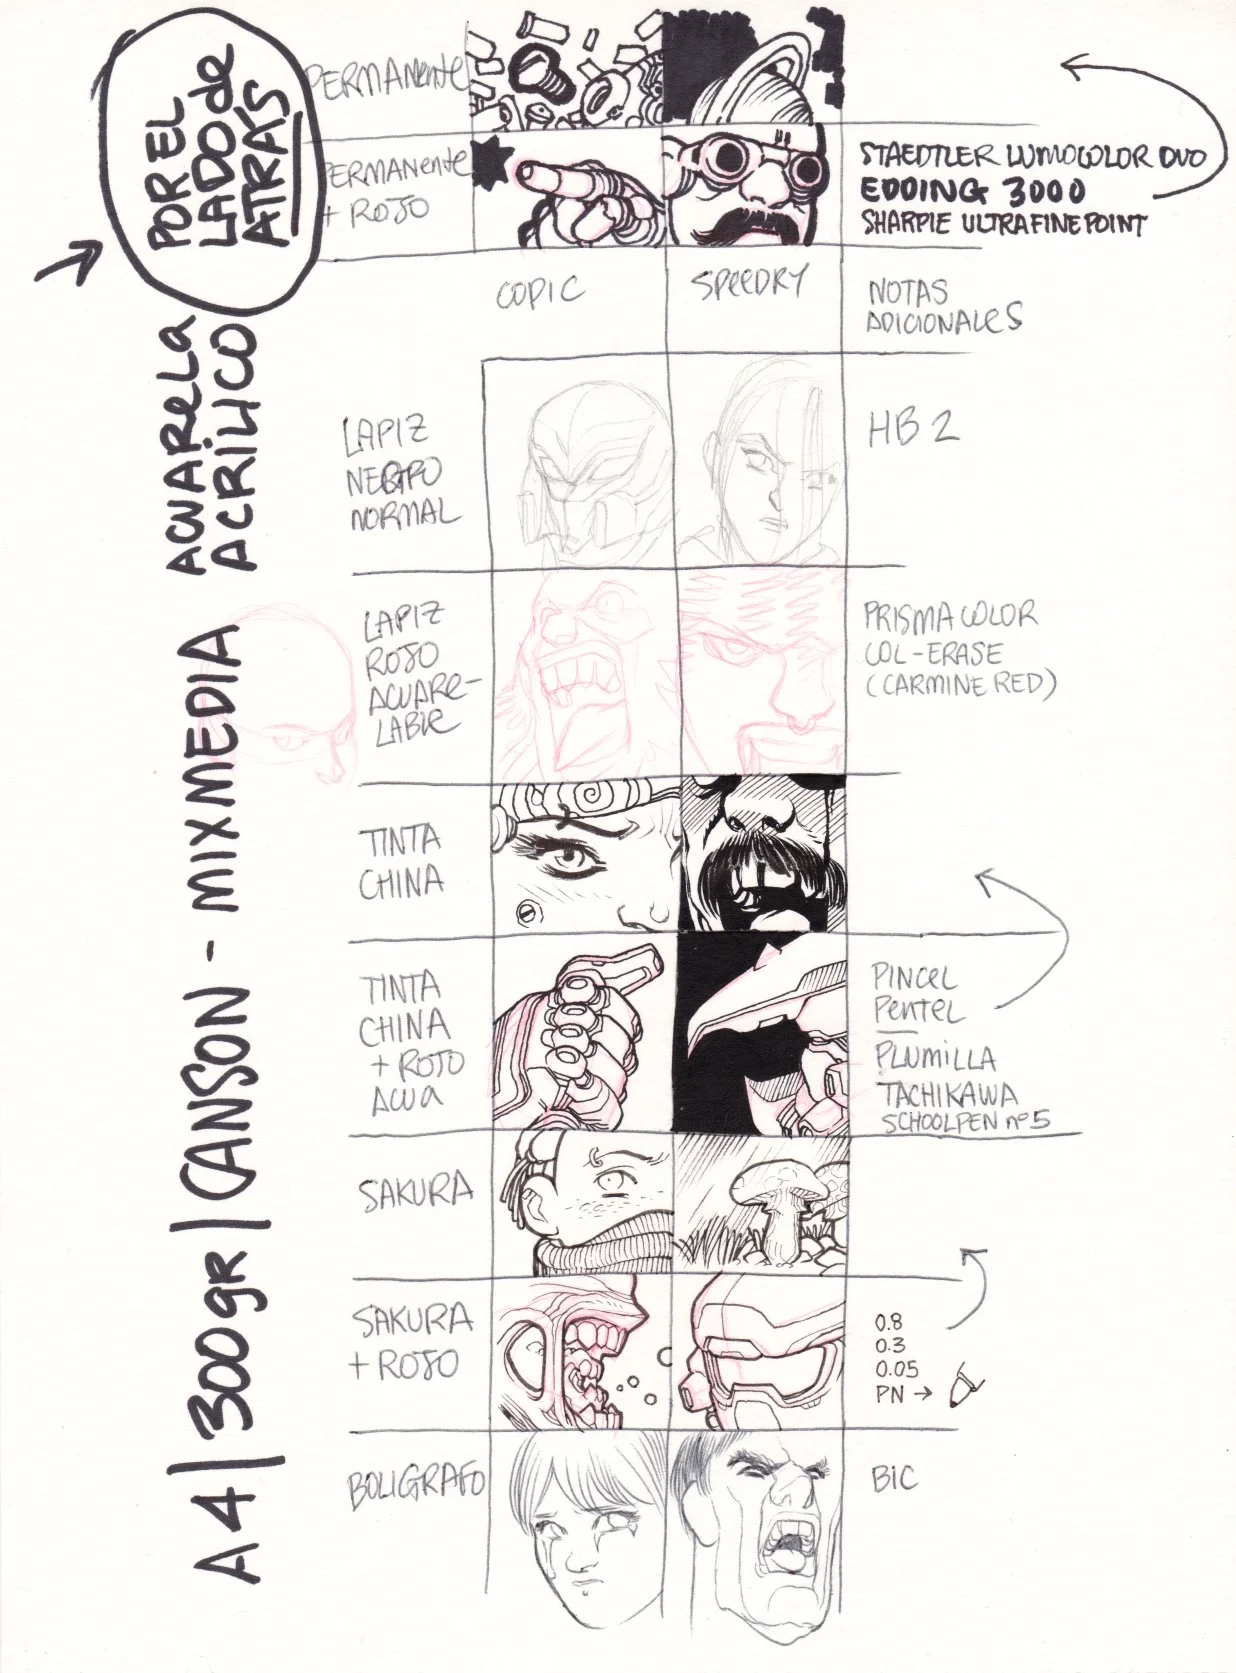 POR EL
LADO de
ATRÁS
ACUARELLA
ACRILICO
A4 | 300gr | CANSON - MIXMEDIA
PERMANENTE
PERMANENTE
+ ROJO
STAEDTLER LUMOCOLOR DUO
EDDING 3000
SHARPIE ULTRAFINE POINT
COPIC
SPEEDRY
NOTAS
ADICIONALES
LAPIZ
NEGRO
NORMAL
HB 2
LAPIZ
ROJO
ACUARE-
LABLE
PRISMACOLOR
COL-ERASE
(CARMINE RED)
TINTA
CHINA
TINTA
CHINA
+ ROJO
ACUA
PINCEL
PENTEL
PLUMILLA
TACHIKAWA
SCHOOLPEN nº5
SAKURA
SAKURA
+ ROJO
0.8
0.3
0.05
PN →
BOLIGRAFO
BIC